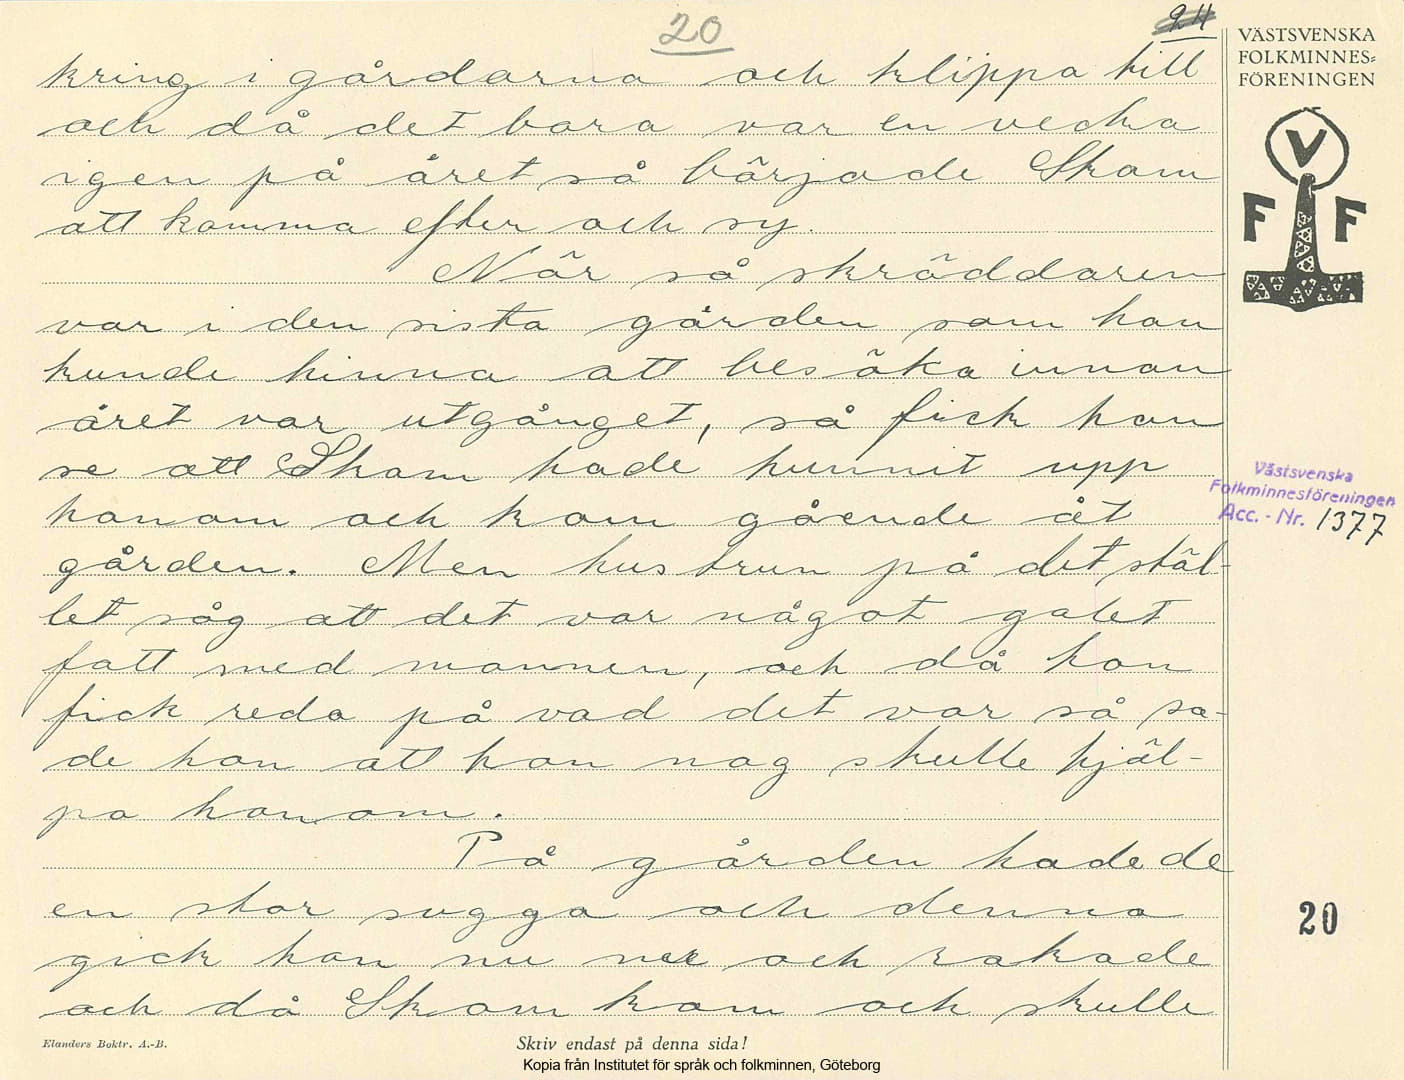 20
24
VÄSTSVENSKA
FOLKMINNES-
FÖRENINGEN
V
F F
kring i gårdarna och klippa till
och då det bara var en vecka
igen på året så började Skam
att komma efter och sy.
När så skräddaren
var i den sista gården som han
kunde hinna att besöka innan
året var utgånget, så fick han
se att Skam hade hunnit upp
honom och kom gående åt
gården. Men hustrun på det stäl-
let såg att det var något galet
fatt med mannen, och då hon
fick reda på vad det var så sa-
de hon att hon nog skulle hjäl-
pa honom.
På gården hade de
en stor sugga och denna
gick hon nu ner och rakade
och då Skam kom och skulle
Västsvenska
Folkminnesföreningen
Acc. - Nr. 1377
20
Elanders Boktr. A.-B.
Skriv endast på denna sida!
Kopia från Institutet för språk och folkminnen, Göteborg